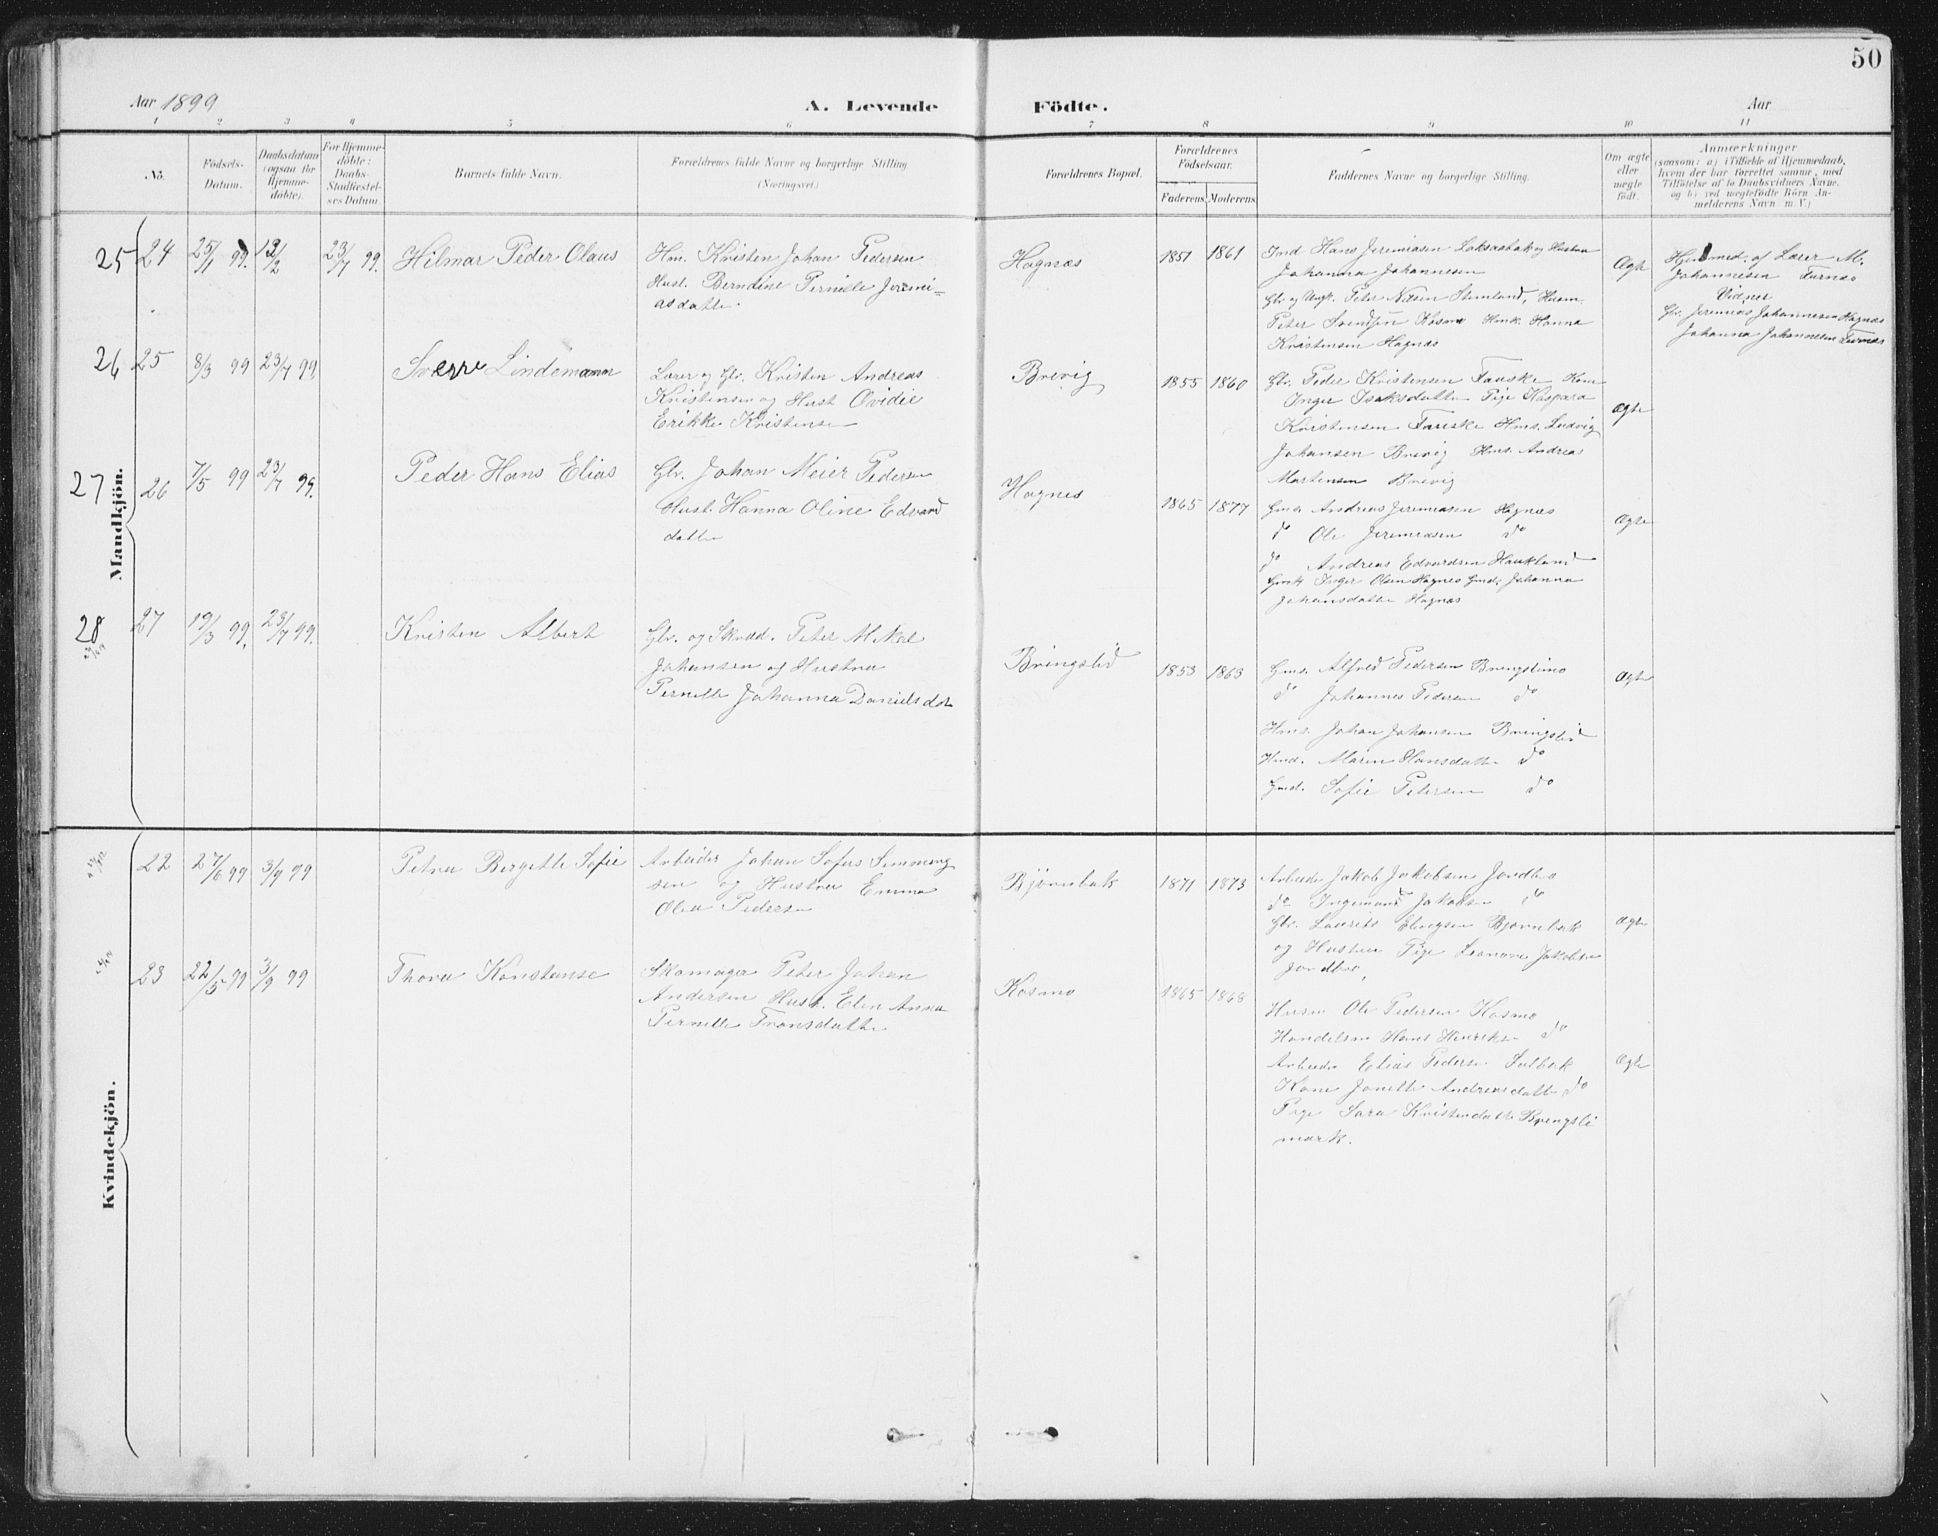 50
Aar 1899
A. Levende Födte.
Aar
1 2 3 4 5 6 7 8 9 10 11
No.
Födsels-Datum.
Daabsdatum (ogsaa for Hjemmedöbte).
For Hjemmedöbte: Daabs-Stadfæstelses Datum
Barnets fulde Navn.
Forældrenes fulde Navne og borgerlige Stilling (Næringsvei.)
Forældrenes Bopæl.
Forældrenes Födselsaar.
Faderens Moderens
Faddernes Navne og borgerlige Stilling.
Om ægte eller uægte födt.
Anmærkninger
(saasom: a) i Tilfælde af Hjemmedaab,
hvem der har forrettet samme, med
Tilföielse af to Daabsvidners Navne.
og b) ved uægtefödte Börn An-
melderens Navn m. V.)
Mandkjön.
25 24 25/1 99. 12/2 23/7 99. Hilmar Peder Olaus
Hm. Kristen Johan Pedersen
Hust. Berndine Pernille Jeremi-
asdatter
Hagnæs 1851 1861
Ind Hans Jeremiasen Laksaabak og Hustru
Johanna Johannesen
Gbr og Ungk. Peter Nilsen Stemland, Husm.
Peter Svendsen Kosmo Hmk. Hanna
Kristensen Hagnæs
Ægte
Hjemmed. af Lærer M.
Johannesen Furnæs
Vidner
Gbr. Jeremias Johannesen Hagnæs
Johanna Johannesen Furnæs
26 25 8/3 99 23/7 99 Sverre Lindemann
Lærer og Gbr. Kristen Andreas
Kristensen og Hust Ovidie
Erikke Kristense
Brevig 1855 1860
Gbr. Peder Kristensen Fauske Kone
Inger Isaksdatter Pige Kaspara
Kristensen Fauske Hms. Ludvig
Johansen Brevig Hms. Andreas
Martensen Brevig
Ægte
27 26 7/5 99 23/7 99. Peder Hans Elias
Gbr. Johan Meier Pedersen
Hust. Hanna Oline Edvard
datter
Hagnes 1865 1877
Gms. Andreas Jeremiasen Hagnæs
do Ole Jeremiasen do
do Andreas Edvardsen Haukland
Gmk Inger Olsen Hagnes Gmd. Johanna
Johansdatter Hagnæs
Ægte
28 27 19/3 99. 23/7 99. Kristen Albert
Gbr. og Skræd. Peter Mikal
Johansen og Hustru
Pernille Johanna Danielsdtr
Bringslid 1853 1863
Gms. Alfred Pedersen Bringslimo
do Johannes Pedersen do
Hms. Johan Johansen Bringslid
Hmd. Maren Hansdatter do
Gmd. Sofie Petersen do
Ægte
Kvindekjön.
22 27/6 99 3/9 99 Petra Bergitte Sofie
Arbeider Johan Sofus Simmeng
sen og Hustru Emma
Olea Pederse
Bjørnbak 1871 1873
Arbeider Jakob Jakobsen Jordbro
do Ingemann Jakobsen do
Gbr. Laurits Elingsen Bjørnbak
og Hustru Pige Leonore Jakobsen
Jordbro,
Ægte
23 22/5 99 3/9 99 Thora Konstanse
Skomager Peter Johan
Andersen Hust. Elen Anna
Pernille Fransdatter
Kosmo 1865 1868
Husm Ole Pedersen Kosmo
Handelsm Hans Henriksen do
Arbeider Elias Pedersen Solbak
Kone Jonette Andreasdatter do
Pige Sara Kristensdatter Brengsli
mark.
Ægte